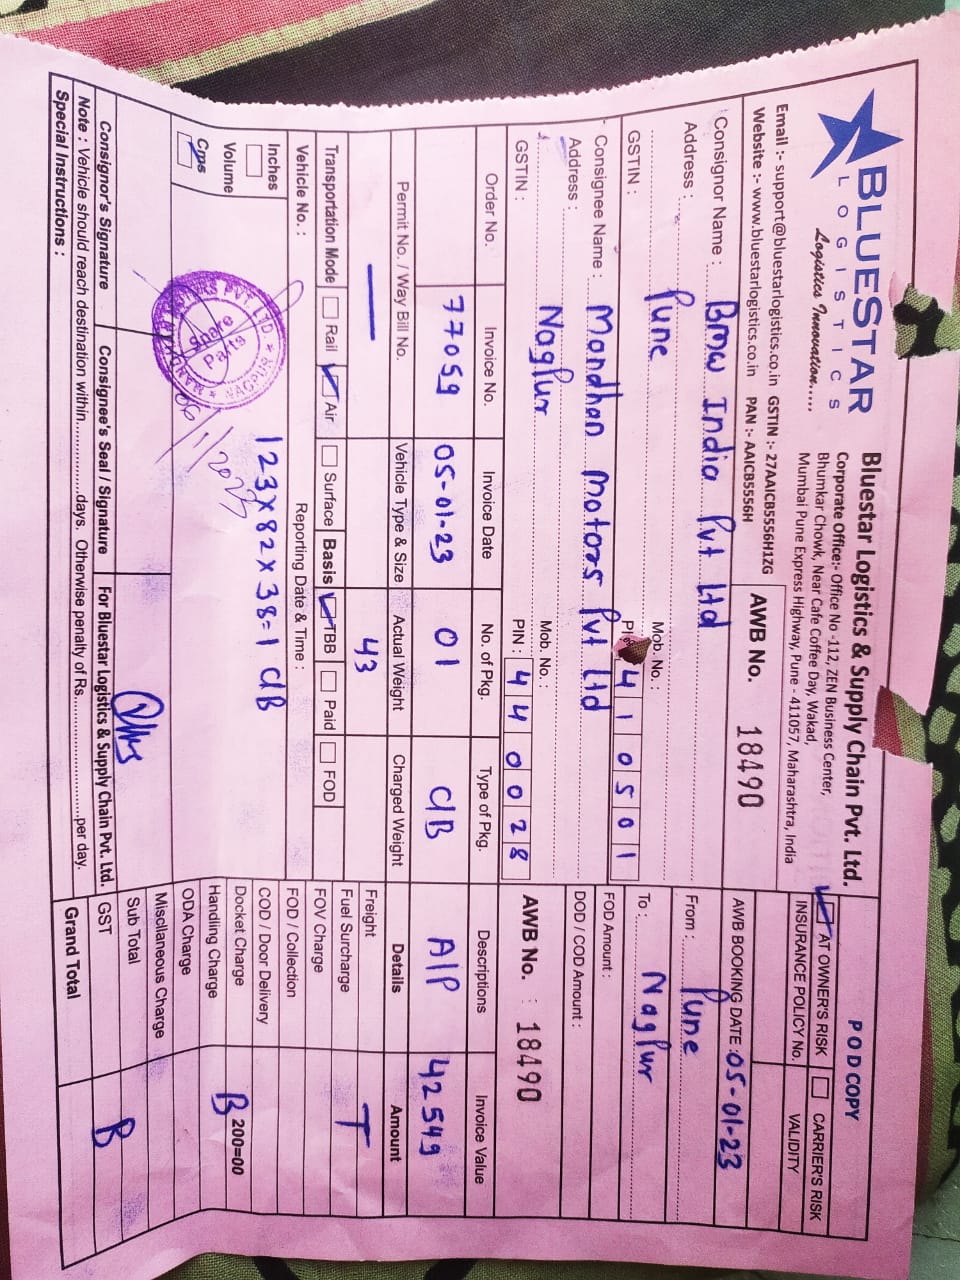 BLUESTAR
LOGISTICS
Logistics Innovation.....
Bluestar Logistics & Supply Chain Pvt. Ltd.
Corporate Office:- Office No -112, ZEN Business Center,
Bhumkar Chowk, Near Cafe Coffee Day, Wakad,
Mumbai Pune Express Highway, Pune - 411057, Maharashtra, India
Email :- support@bluestarlogistics.co.in GSTIN :- 27AAICB5556H1ZG
Website :- www.bluestarlogistics.co.in PAN :- AAICB5556H
AWB No. 18490
POD COPY
AT OWNER'S RISK CARRIER'S RISK
INSURANCE POLICY No. VALIDITY
AWB BOOKING DATE : 05-01-23
From : Pune
To : Nagpur
FOD Amount :
DOD / COD Amount :
AWB No. : 18490
Consignor Name : BMW India Pvt Ltd
Address : Pune
Mob. No. :
GSTIN : 410501
Consignee Name : Mondhan Motors Pvt Ltd
Address : Nagpur
Mob. No. :
GSTIN : PIN : 440028
Order No. Invoice No. Invoice Date No. of Pkg. Type of Pkg. Descriptions Invoice Value
77059 05-01-23 01 C/B A/P 42549
Permit No. / Way Bill No. Vehicle Type & Size Actual Weight Charged Weight Details Amount
— 43
Freight T
Fuel Surcharge
FOV Charge
FOD / Collection
COD / Door Delivery
Docket Charge B 200=00
Handling Charge
ODA Charge
Miscllaneous Charge
Sub Total
GST B
Grand Total
Transportation Mode Rail Air Surface Basis TBB Paid FOD
Vehicle No. : Reporting Date & Time :
Inches
Volume
Cms
123x82x38=1 C/B
Spare
Parts
06/1/2023
Consignor's Signature Consignee's Seal / Signature For Bluestar Logistics & Supply Chain Pvt. Ltd.
Note : Vehicle should reach destination within.................days. Otherwise penalty of Rs.............................per day.
Special Instructions :